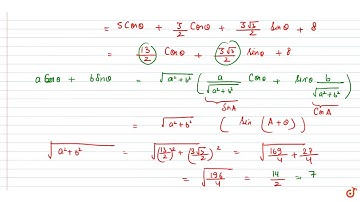 = 5 Cosθ + 3/2 Cosθ + 3√3/2 Sinθ + 8
= 13/2 Cosθ + 3√3/2 Sinθ + 8
a Cosθ + b Sinθ = √a²+b² ( a/√a²+b² Cosθ + Sinθ b/√a²+b² )
SinA CosA
= √a²+b² ( Sin (A+θ) )
√a²+b² = √(13/2)² + (3√3/2)² = √169/4 + 27/4
= √196/4 = 14/2 = 7